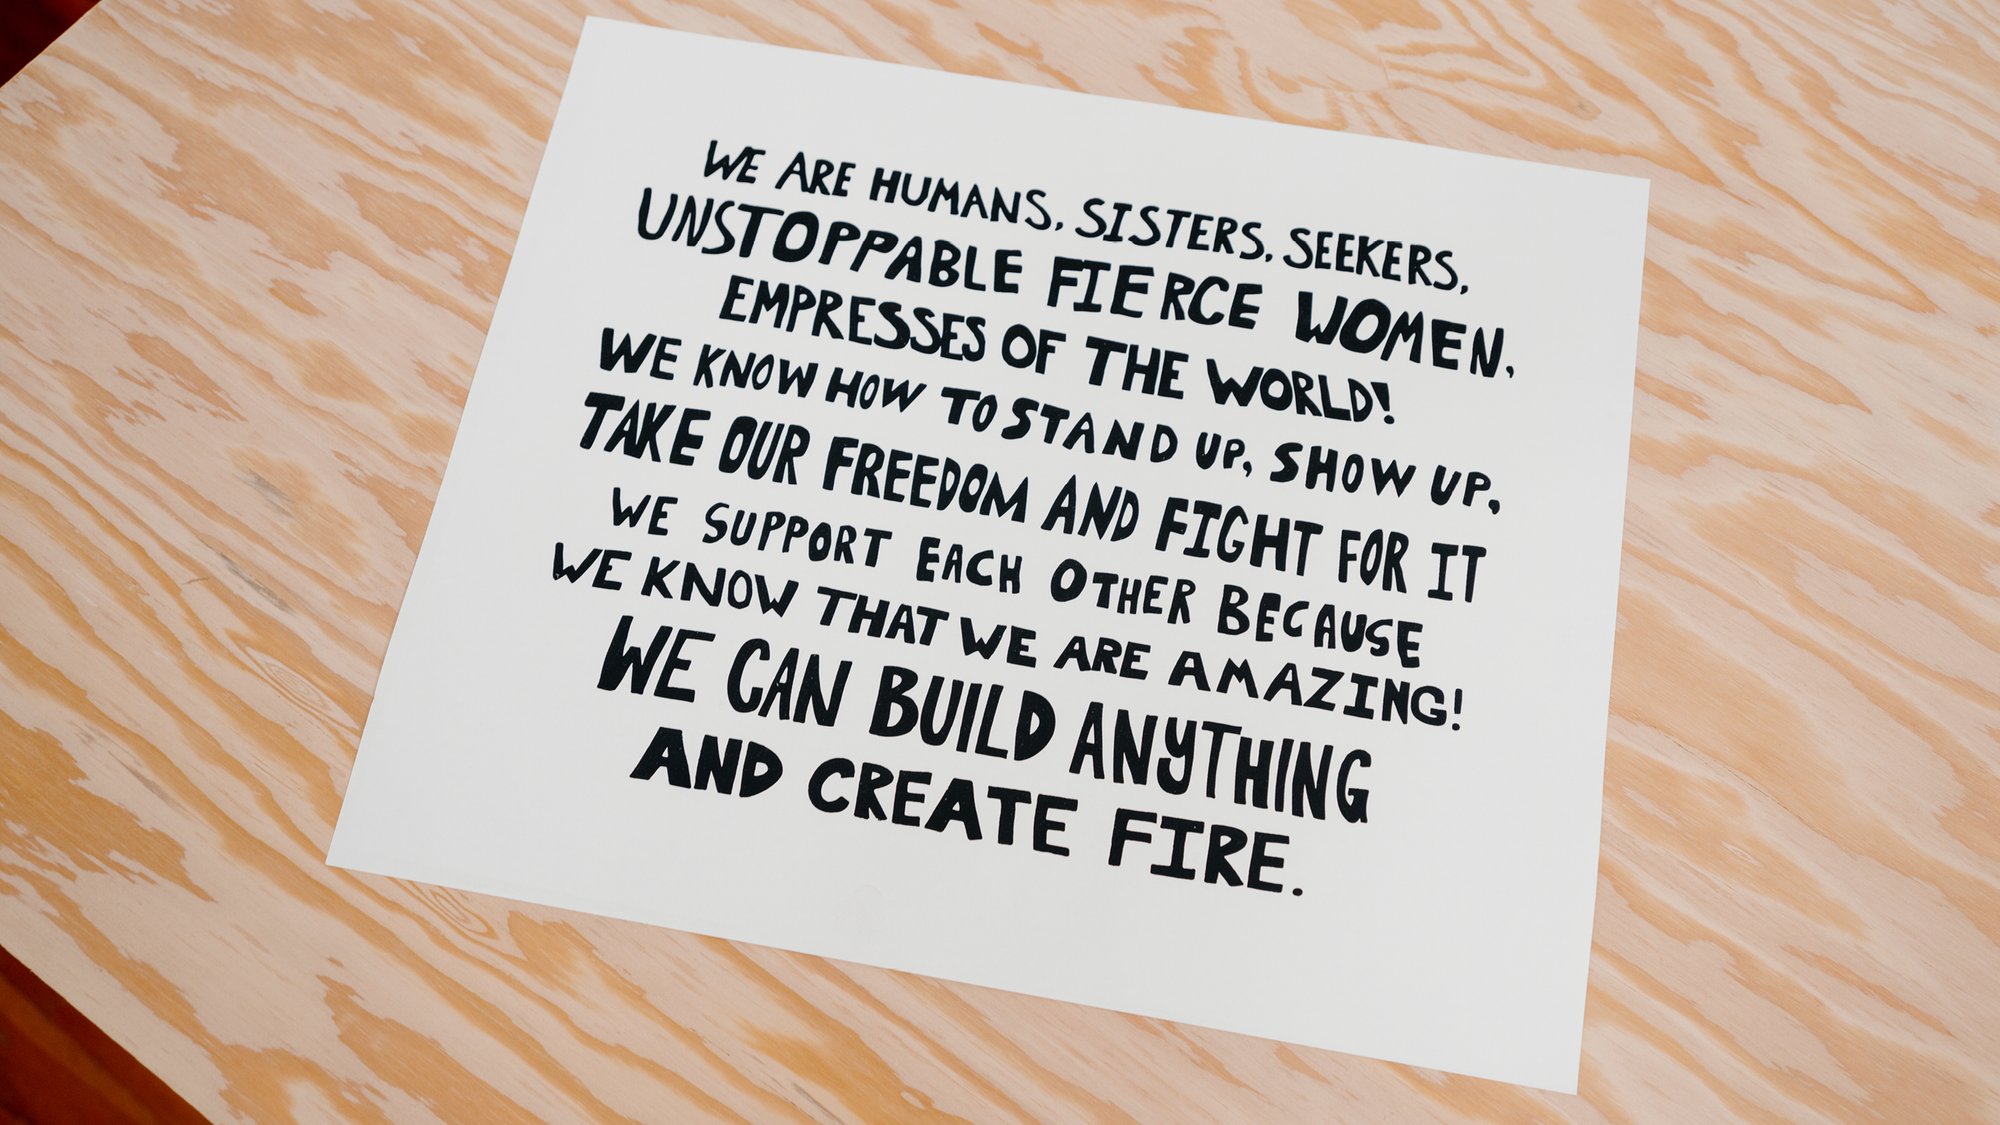 WE ARE HUMANS, SISTERS, SEEKERS,
UNSTOPPABLE FIERCE WOMEN,
EMPRESSES OF THE WORLD!
WE KNOW HOW TO STAND UP, SHOW UP,
TAKE OUR FREEDOM AND FIGHT FOR IT
WE SUPPORT EACH OTHER BECAUSE
WE KNOW THAT WE ARE AMAZING!
WE CAN BUILD ANYTHING
AND CREATE FIRE.